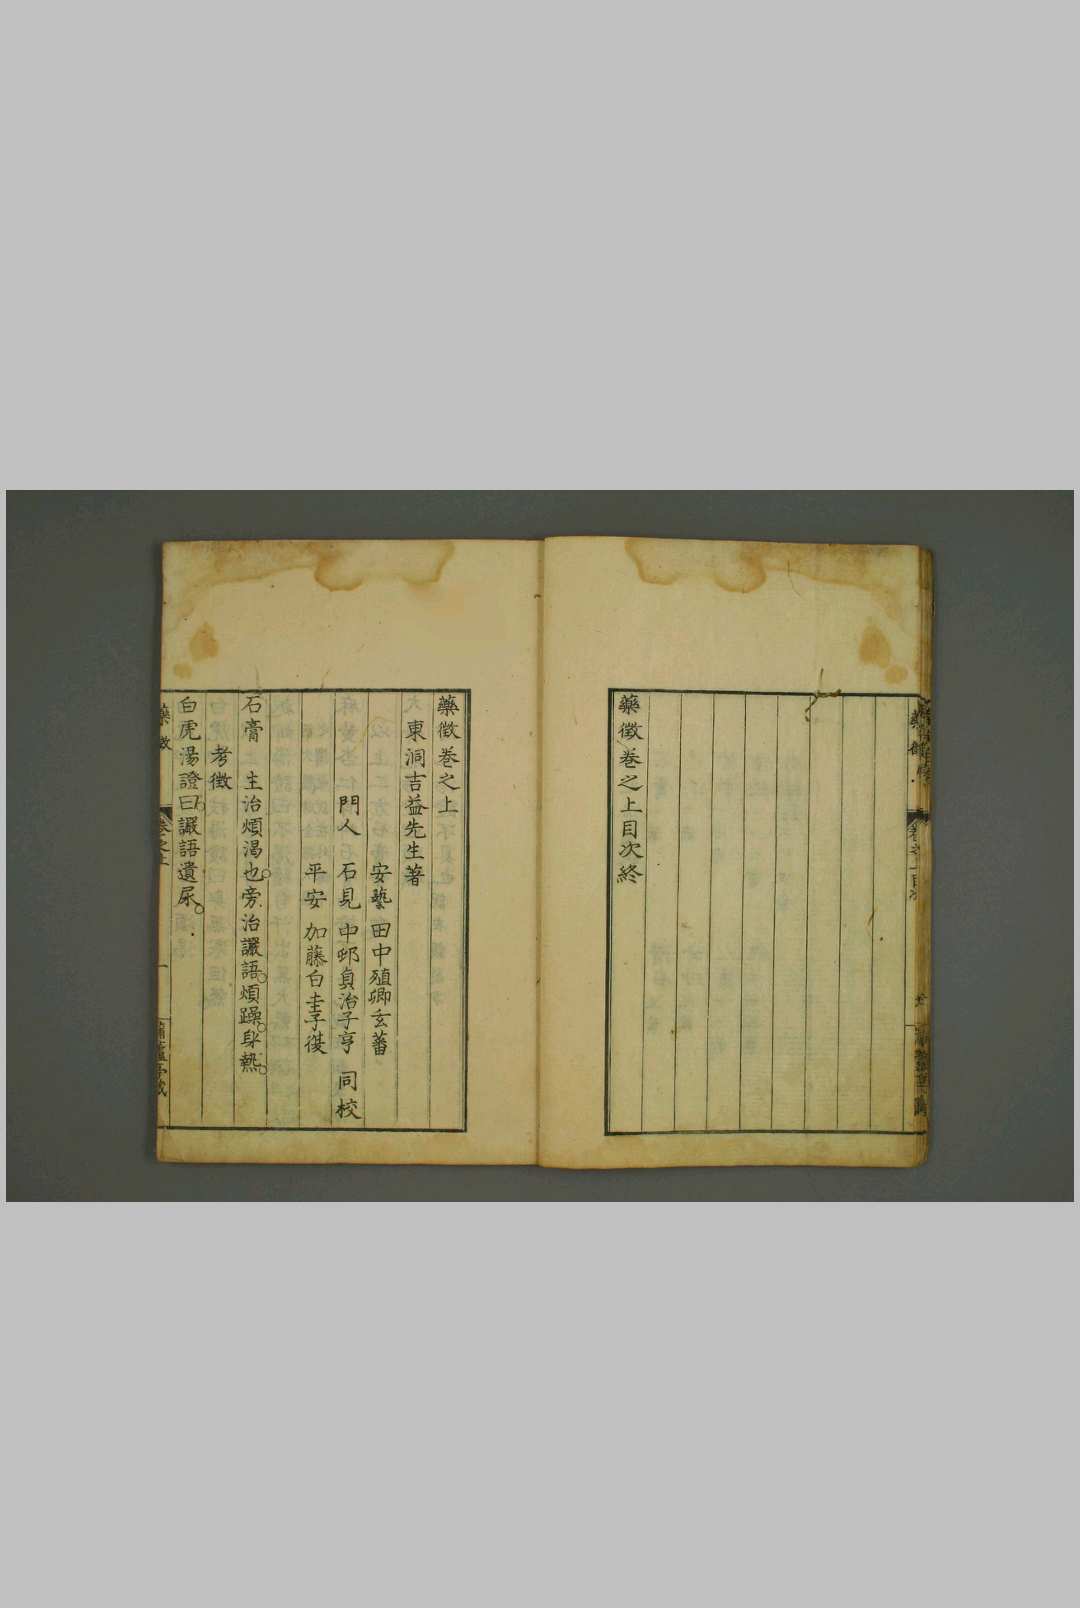 藥徵卷之上目次終
藥徵卷之上
東洞吉益先生著
安藝 田中殖卿玄蕃
門人 石見 中邨貞治子亨 同校
平安 加藤白圭子復
石膏 主治煩渴也旁治讝語煩躁身熱
考徵
白虎湯證曰讝語遺尿
藥徵
卷之上
一